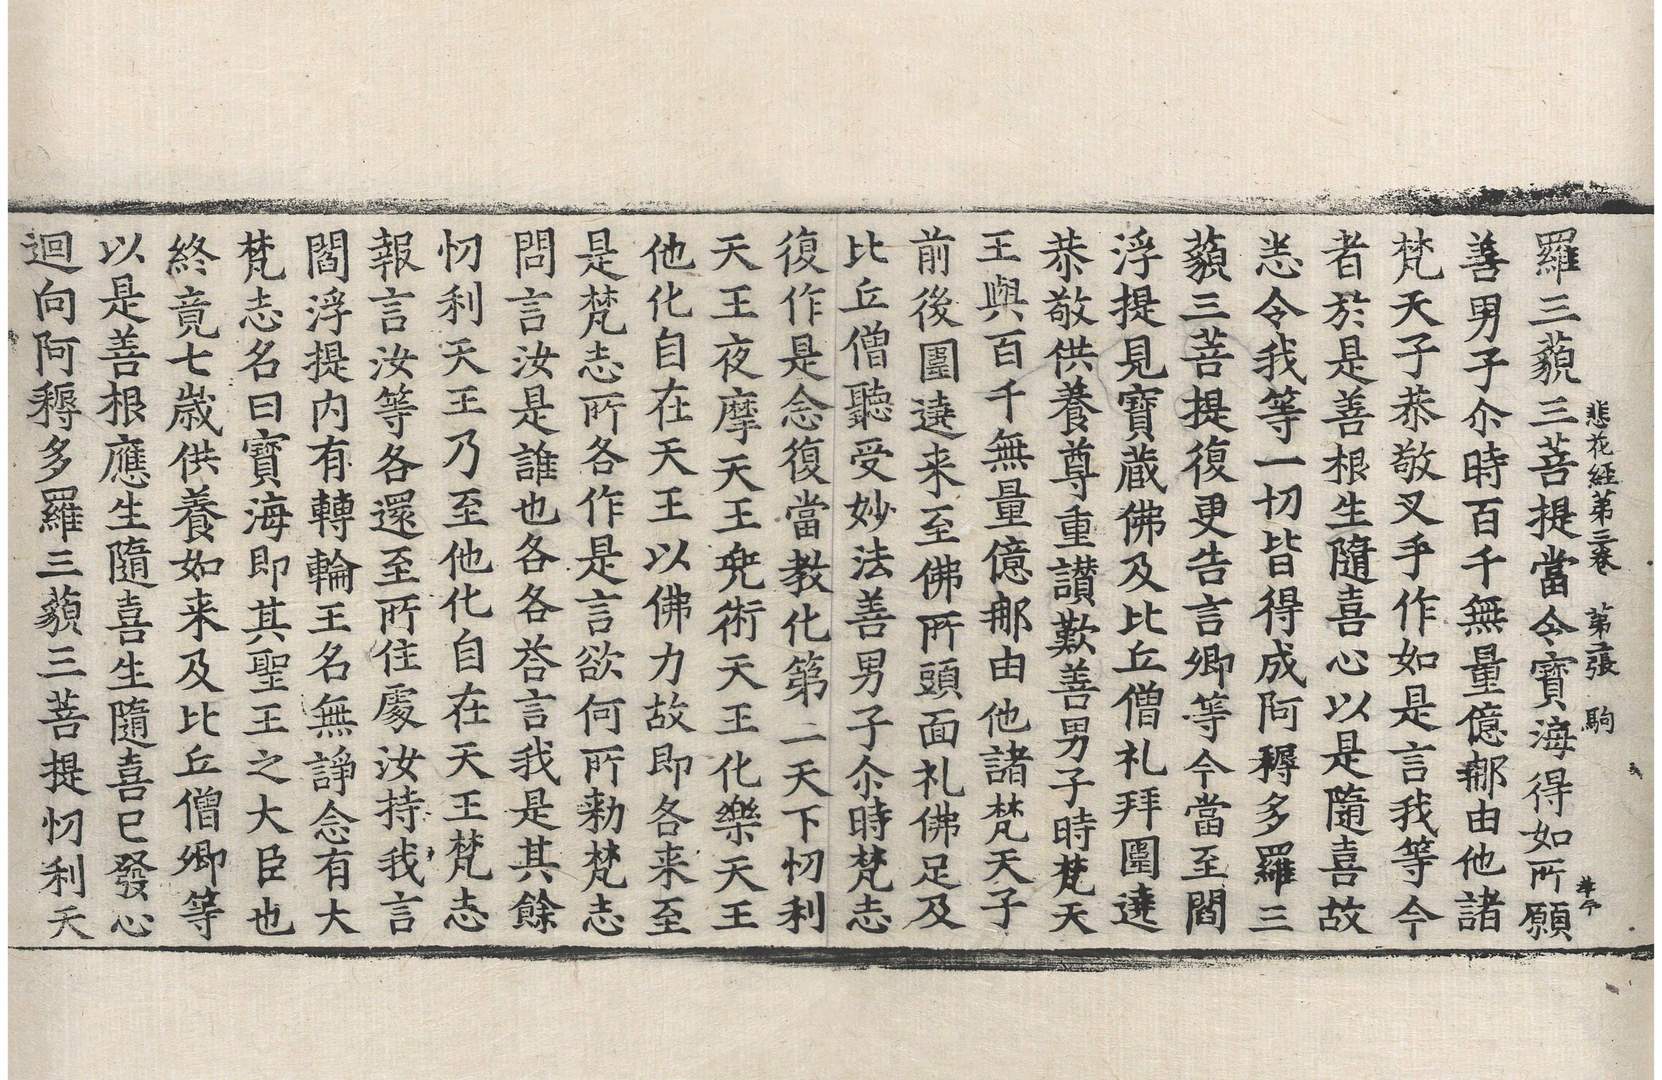 悲花経第三巻　第二張　駒
羅三藐三菩提當令寶海得如所願
善男子尒時百千無量億那由他諸
梵天子恭敬叉手作如是言我等今
者於是善根生隨喜心以是隨喜故
悉令我等一切皆得成阿耨多羅三
藐三菩提復更告言卿等今當至閻
浮提見寶蔵佛及比丘僧礼拜圍遶
恭敬供養尊重讃歎善男子時梵天
王與百千無量億那由他諸梵天子
前後圍遶来至佛所頭面礼佛足及
比丘僧聽受妙法善男子尒時梵志
復作是念復當教化第二天下忉利
天王夜摩天王兜術天王化樂天王
他化自在天王以佛力故即各来至
是梵志所各作是言欲何所勑梵志
問言汝是誰也各各荅言我是其餘
忉利天王乃至他化自在天王梵志
報言汝等各還至所住處汝持我言
閻浮提内有轉輪王名無諍念有大
梵志名曰寶海即其聖王之大臣也
終竟七歳供養如来及比丘僧卿等
以是善根應生隨喜生隨喜已發心
迴向阿耨多羅三藐三菩提忉利天